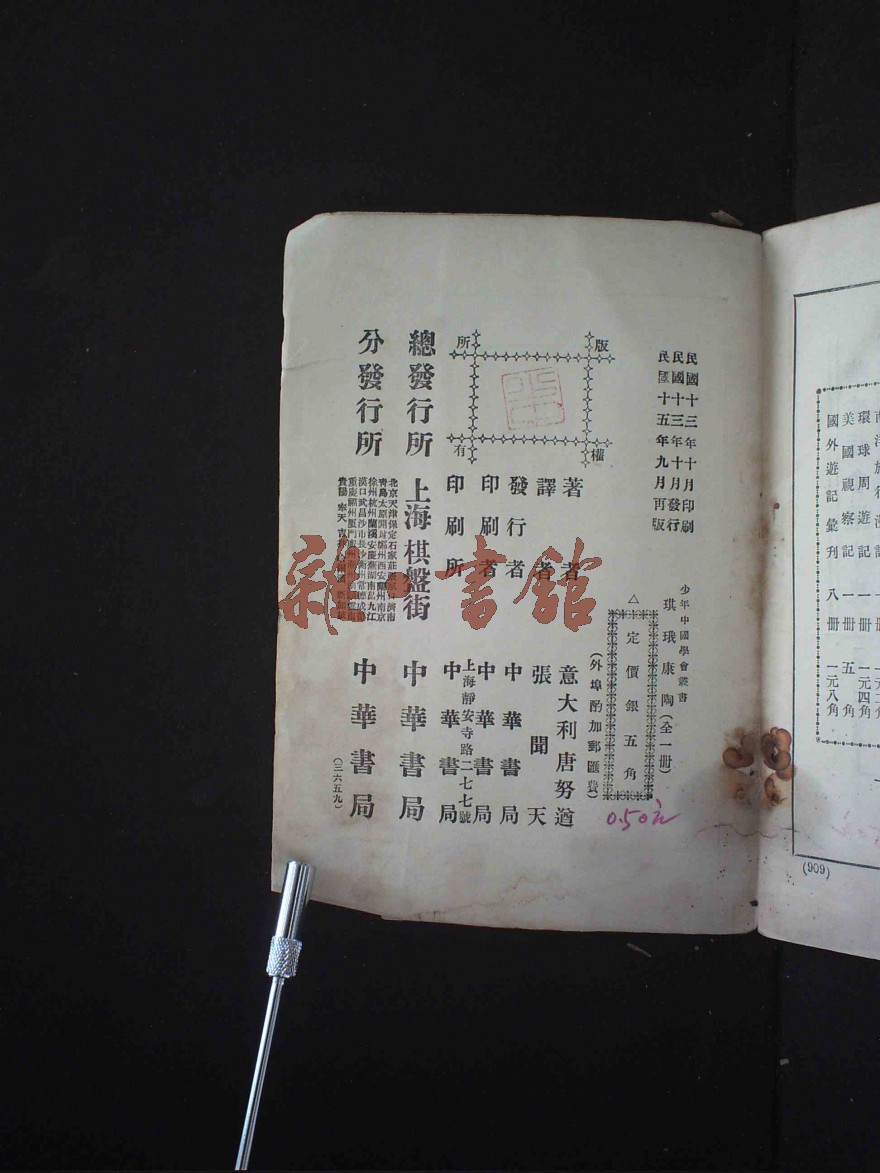 民國十三年十月印刷
民國十三年十月發行
民國十五年九月再版
少年中國學會叢書
琪珴康陶(全一冊)
△定價銀五角
(外埠酌加郵匯費)
0.50元
版權所有
著者 意大利唐努遒
譯者 張聞天
發行者 中華書局
印刷者 中華書局
上海靜安寺路二七七號
印刷所 中華書局
總發行所 上海棋盤街 中華書局
分發行所 中華書局
北京天津保定石家莊
青島太原開封鄭州西安蘭州南京
徐州杭州蘭溪安慶蕪湖南昌九江
漢口武昌沙市長沙
重慶
貴陽 奉天
(三六五九)
雜書館
環球周遊記 一冊 一元四角
美國視察記 一冊 五角
國外遊記彙刊 八冊 一元八角
(909)